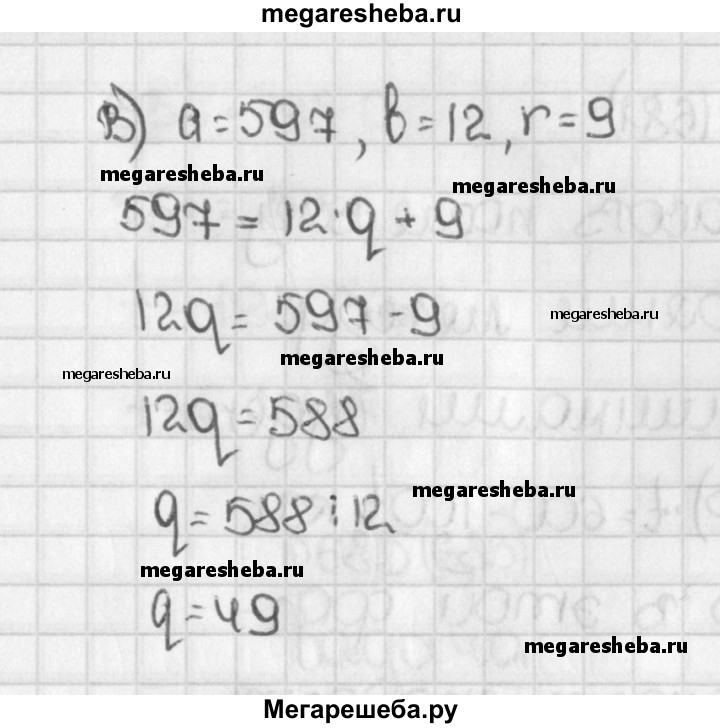 megaresheba.ru
в) a = 597, b = 12, r = 9
megaresheba.ru
megaresheba.ru
597 = 12·q + 9
12q = 597 - 9
megaresheba.ru
megaresheba.ru
megaresheba.ru
12q = 588
megaresheba.ru
q = 588 : 12
megaresheba.ru
q = 49
megaresheba.ru
Мегарешеба.ру